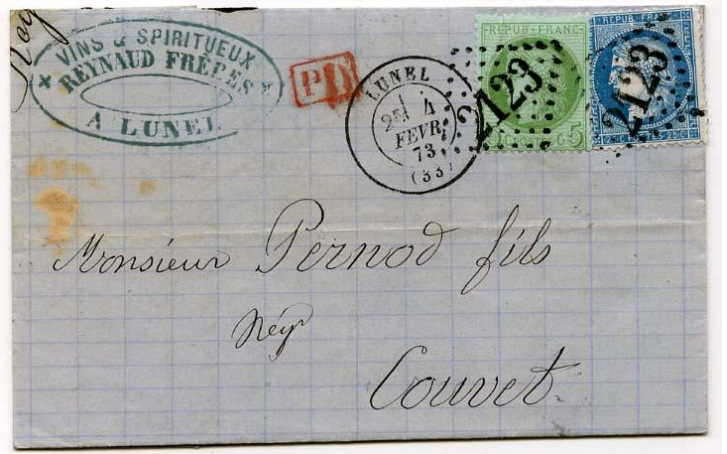 Rey
VINS & SPIRITUEUX
REYNAUD FRÈRES
A LUNEL
PD
LUNEL
2E 4
FEVR.
73
(33)
REPUB. FRANC.
5
2123
REPUB. FRANC.
25
2123
Monsieur Pernod fils
Couvet